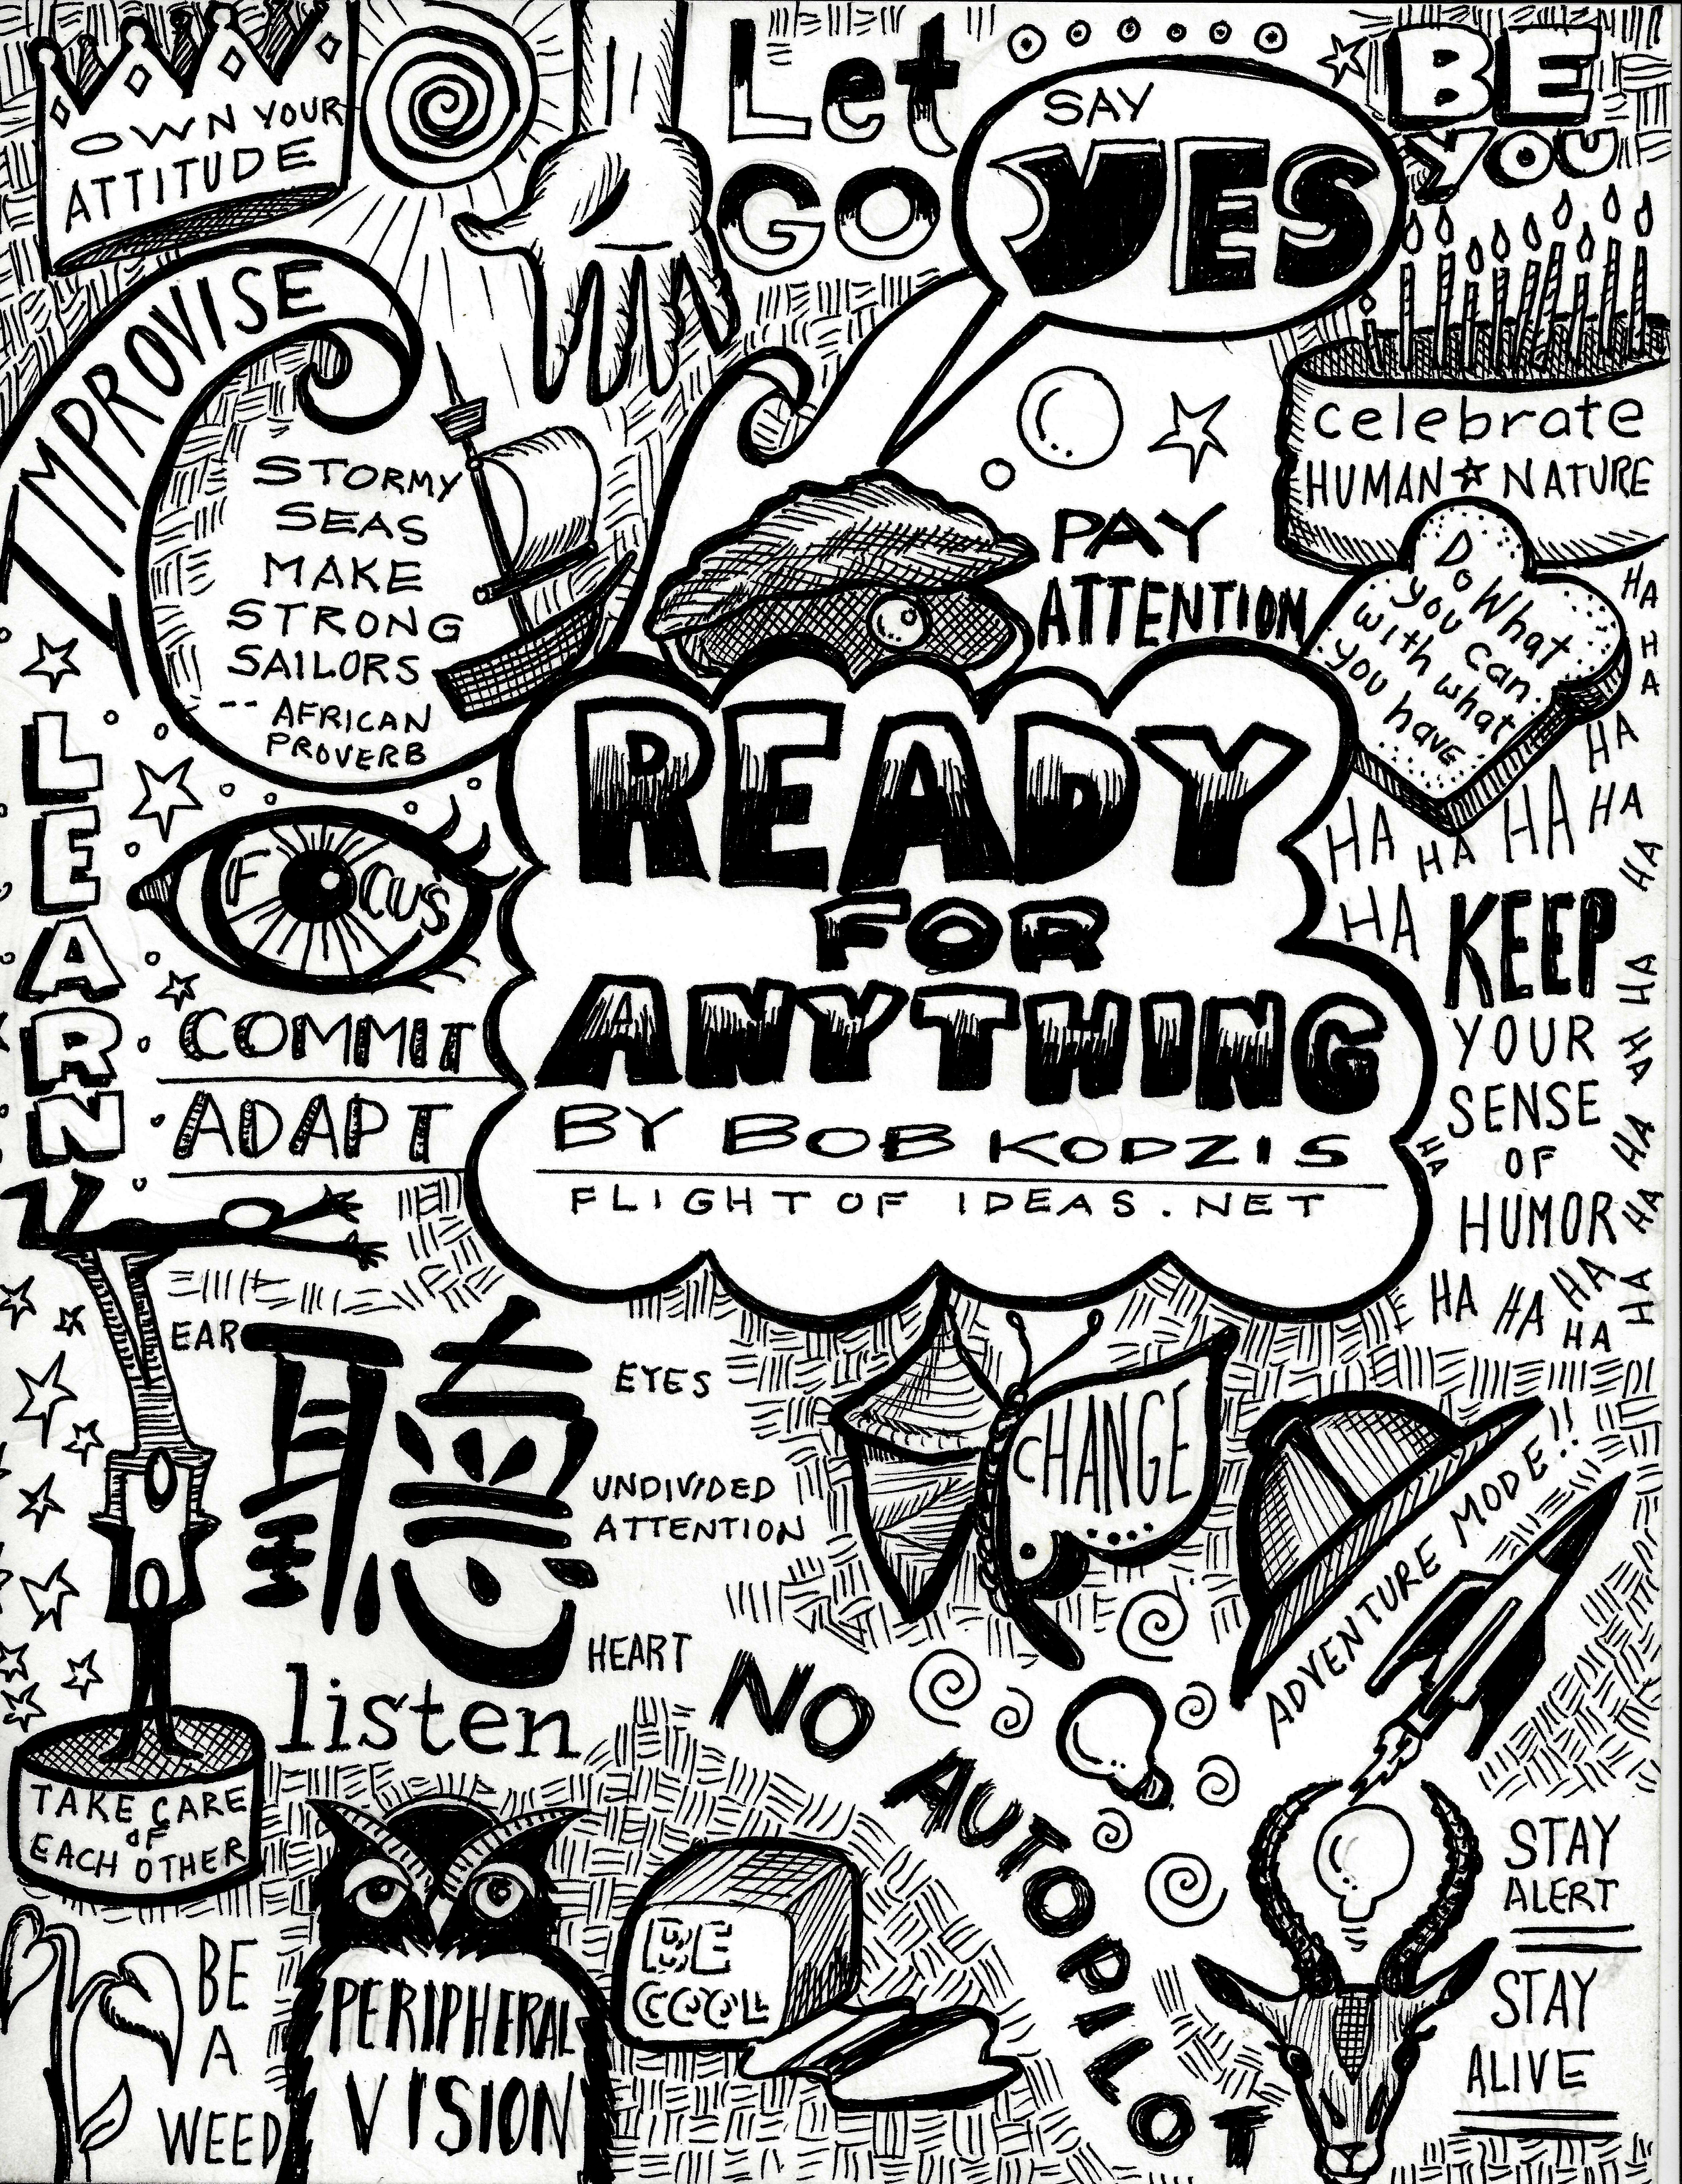 OWN YOUR
ATTITUDE
Let
GO
SAY
YES
BE
YOU
IMPROVISE
STORMY
SEAS
MAKE
STRONG
SAILORS
-- AFRICAN
PROVERB
celebrate
HUMAN ☆ NATURE
PAY
ATTENTION
Do What
you can
with what
you have
HA
H
A
HA
HA
HA
HA
HA
HA
HA
HA
LEARN
FOCUS
COMMIT
ADAPT
READY
FOR
ANYTHING
BY BOB KODZIS
FLIGHTOFIDEAS.NET
KEEP
YOUR
SENSE
OF
HUMOR
HA
HA
HA
HA
HA
HA
HA
HA
HA
HA
HA
HA
EAR
聽
EYES
UNDIVIDED
ATTENTION
HEART
listen
CHANGE
ADVENTURE MODE!!
NO AUTOPILOT
TAKE CARE
OF
EACH OTHER
BE
A
WEED
PERIPHERAL
VISION
BE
COOL
STAY
ALERT
STAY
ALIVE